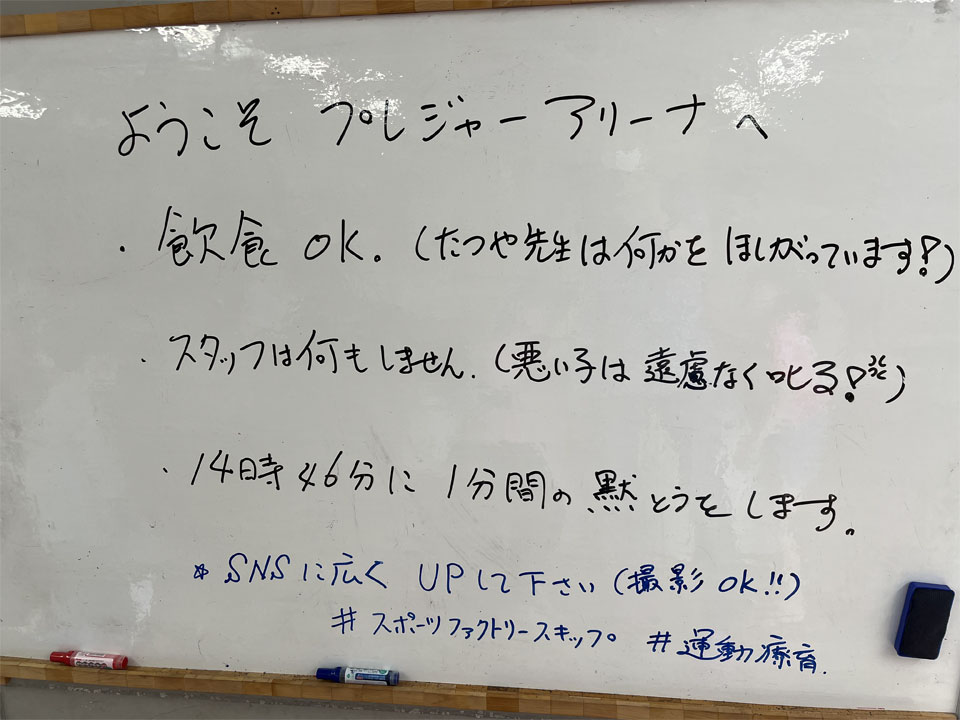 ようこそ プレジャーアリーナへ
・飲食OK.(たつや先生は何かをほしがっています!)
・スタッフは何もしません.(悪い子は遠慮なく叱る!)
・14時46分に1分間の黙とうをします。
* SNSに広くUPして下さい(撮影OK!!)
#スポーツファクトリースキップ。 #運動療育.